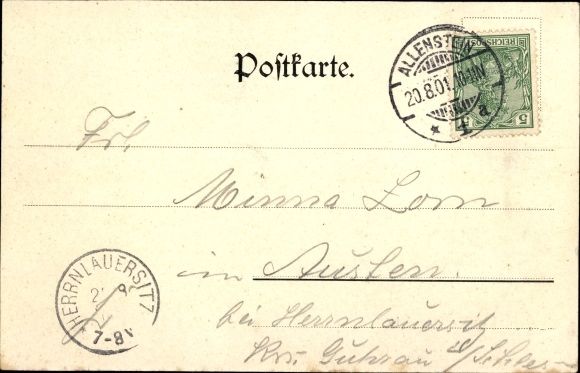 Postkarte.
ALLENSTEIN
20.8.01. 10-11N
* 1 a
REICHSPOST
5 5
Frl.
Minna Lorn
in Austen.
bei Herrnlauersitz
Krs. Guhrau i/Schles
HERRNLAUERSITZ
7-8V